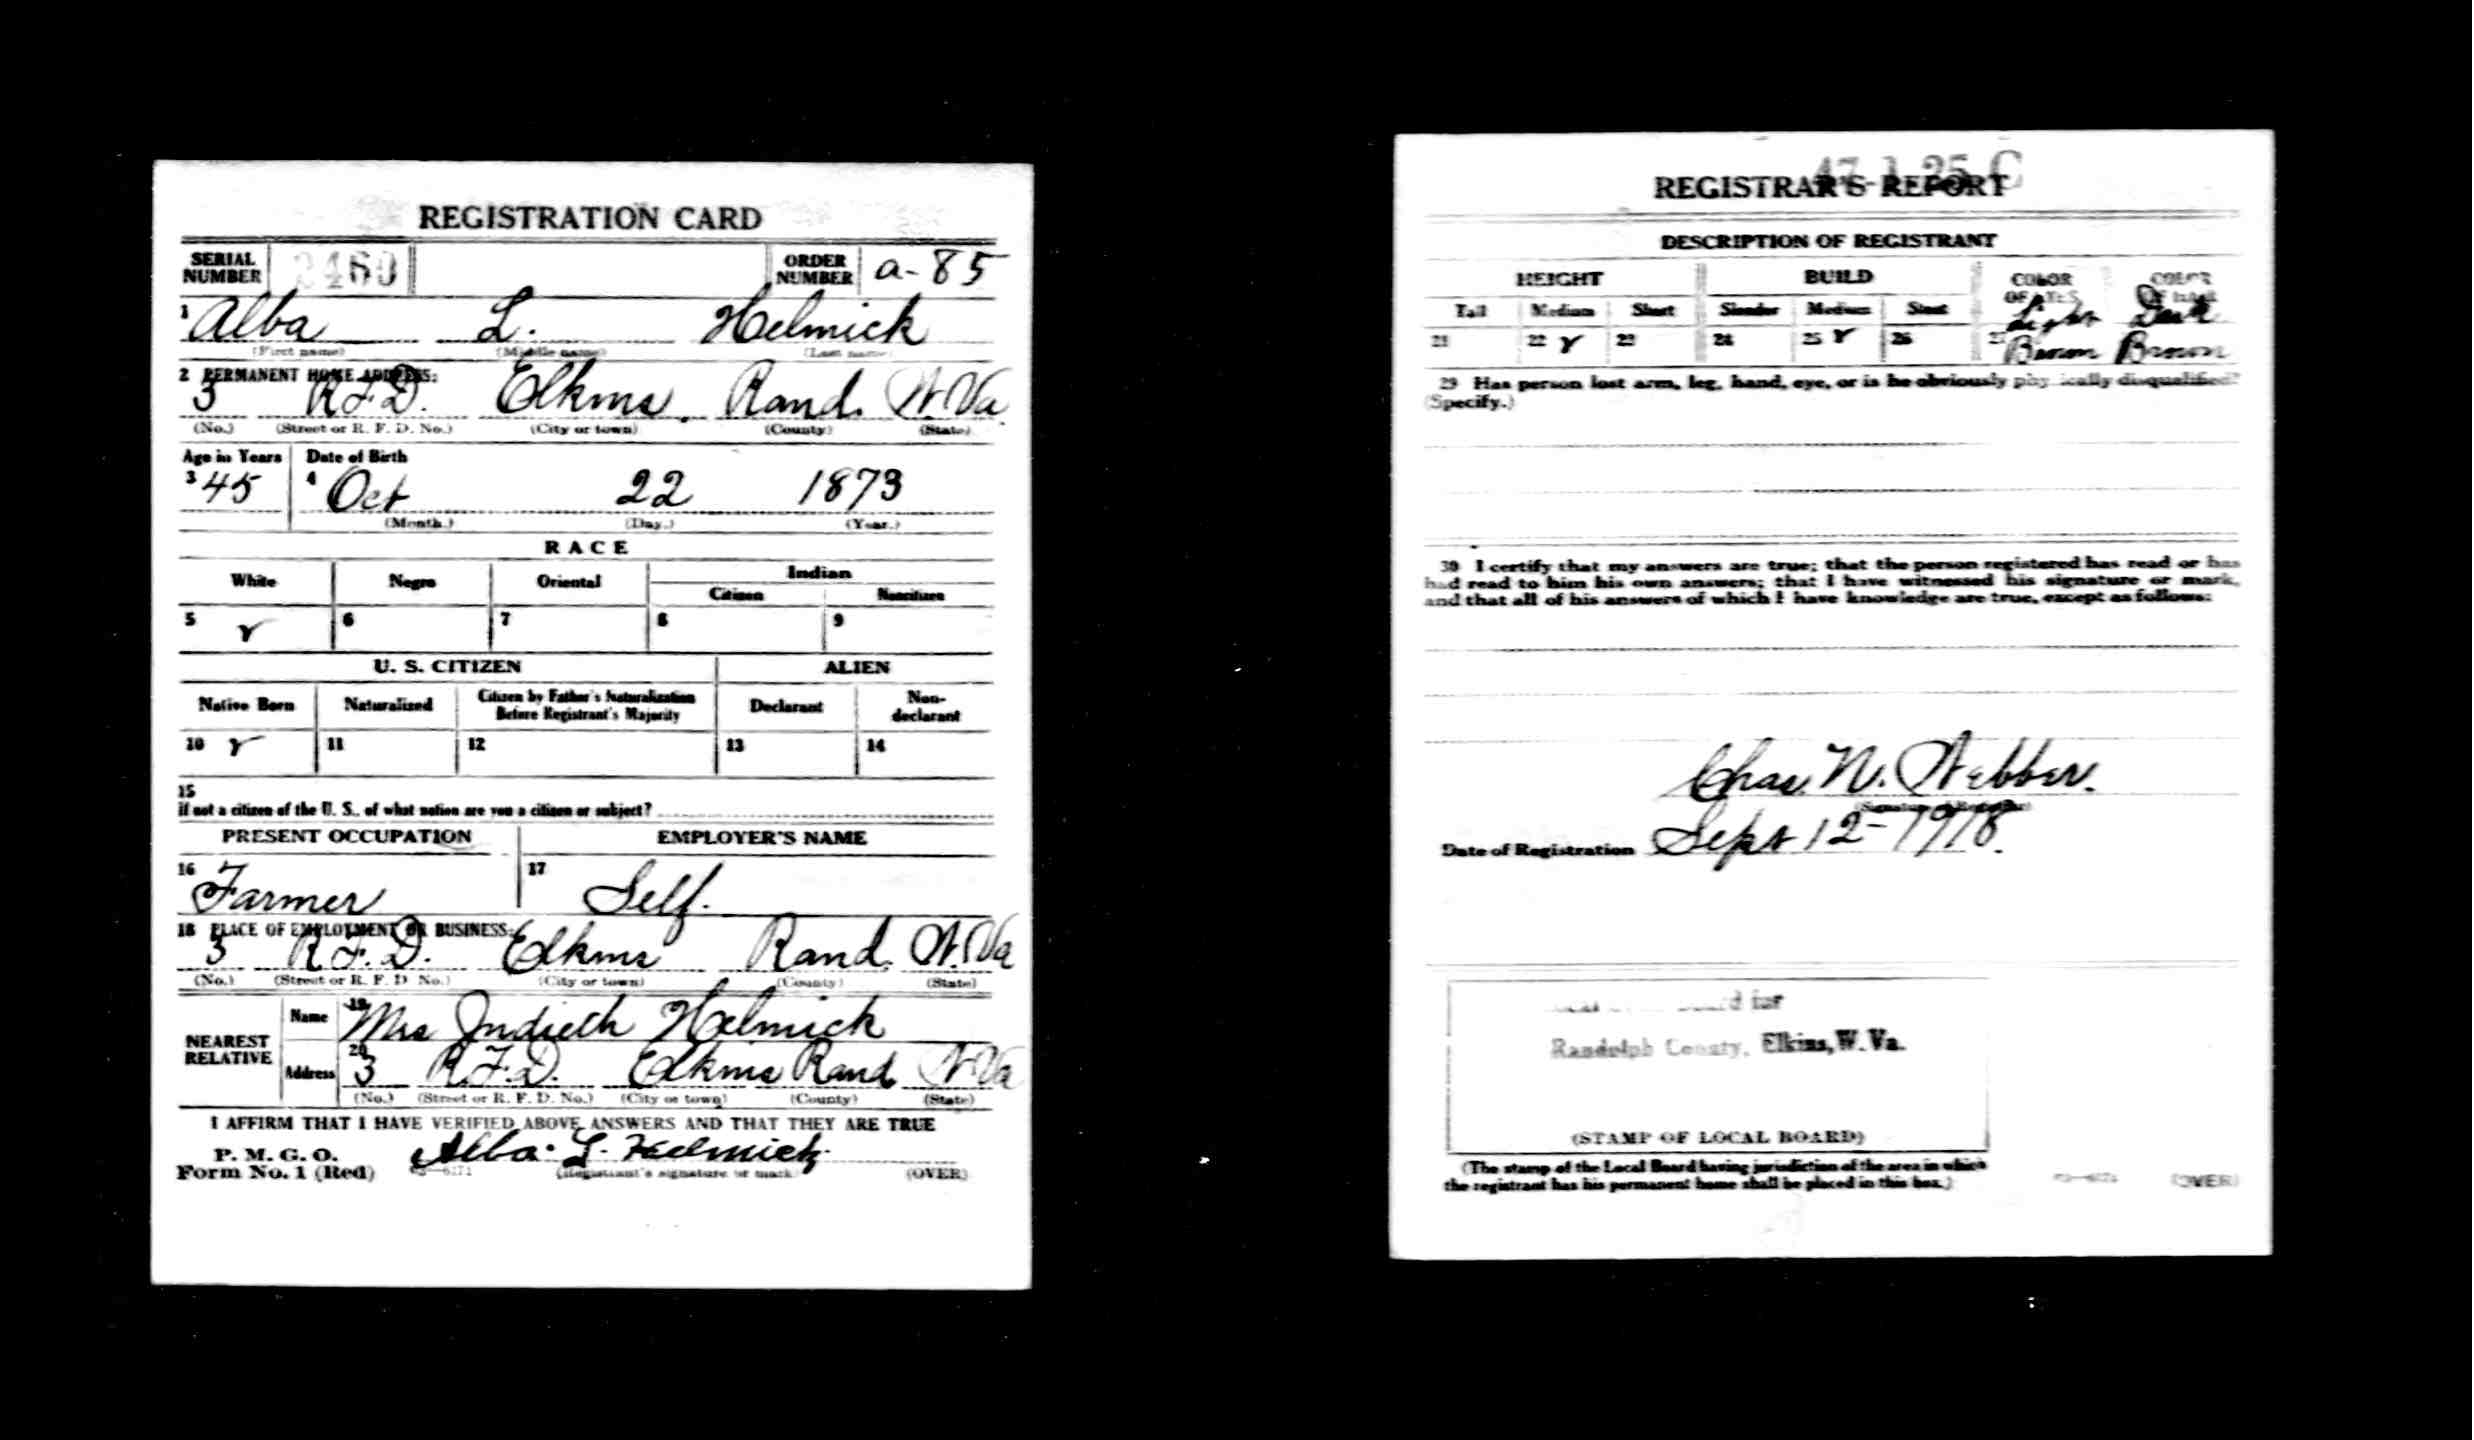 REGISTRATION CARD
SERIAL NUMBER 2460 ORDER NUMBER a-85
1 Alba L. Helmick
(First name) (Middle name) (Last name)
2 PERMANENT HOME ADDRESS:
3 R.F.D. Elkins, Rand. W.Va.
(No.) (Street or R. F. D. No.) (City or town) (County) (State)
Age in Years Date of Birth
3 45 4 Oct 22 1873
(Month.) (Day.) (Year.)
RACE
White Negro Oriental Indian
Citizen Noncitizen
5 6 7 8 9
U. S. CITIZEN ALIEN
Native Born Naturalized Citizen by Father's Naturalization Before Registrant's Majority Declarant Non-declarant
10 11 12 13 14
15
If not a citizen of the U. S., of what nation are you a citizen or subject?
PRESENT OCCUPATION EMPLOYER'S NAME
16 Farmer 17 Self.
18 PLACE OF EMPLOYMENT OR BUSINESS:
3 R.F.D. Elkins Rand. W.Va
(No.) (Street or R. F. D. No.) (City or town) (County) (State)
NEAREST RELATIVE
Name 19 Mrs Helmick
Address 20 3 R.F.D. Elkins Rand W.Va
(No.) (Street or R. F. D. No.) (City or town) (County) (State)
I AFFIRM THAT I HAVE VERIFIED ABOVE ANSWERS AND THAT THEY ARE TRUE
P. M. G. O.
Form No. 1 (Red) Alba. L. Helmick
(Registrant's signature or mark) (OVER)
REGISTRAR'S REPORT
DESCRIPTION OF REGISTRANT
HEIGHT BUILD COLOR OF EYES COLOR OF HAIR
Tall Medium Short Slender Medium Stout Light Dark
21 22 23 24 25 26 27 Brown Brown
29 Has person lost arm, leg, hand, eye, or is he obviously physically disqualified?
(Specify.)
30 I certify that my answers are true; that the person registered has read or has
had read to him his own answers; that I have witnessed his signature or mark,
and that all of his answers of which I have knowledge are true, except as follows:
Chas. N. Webber.
(Signature of Registrar)
Date of Registration Sept 12-1918.
Randolph County, Elkins, W. Va.
(STAMP OF LOCAL BOARD)
(The stamp of the Local Board having jurisdiction of the area in which
the registrant has his permanent home shall be placed in this box.)
(OVER)